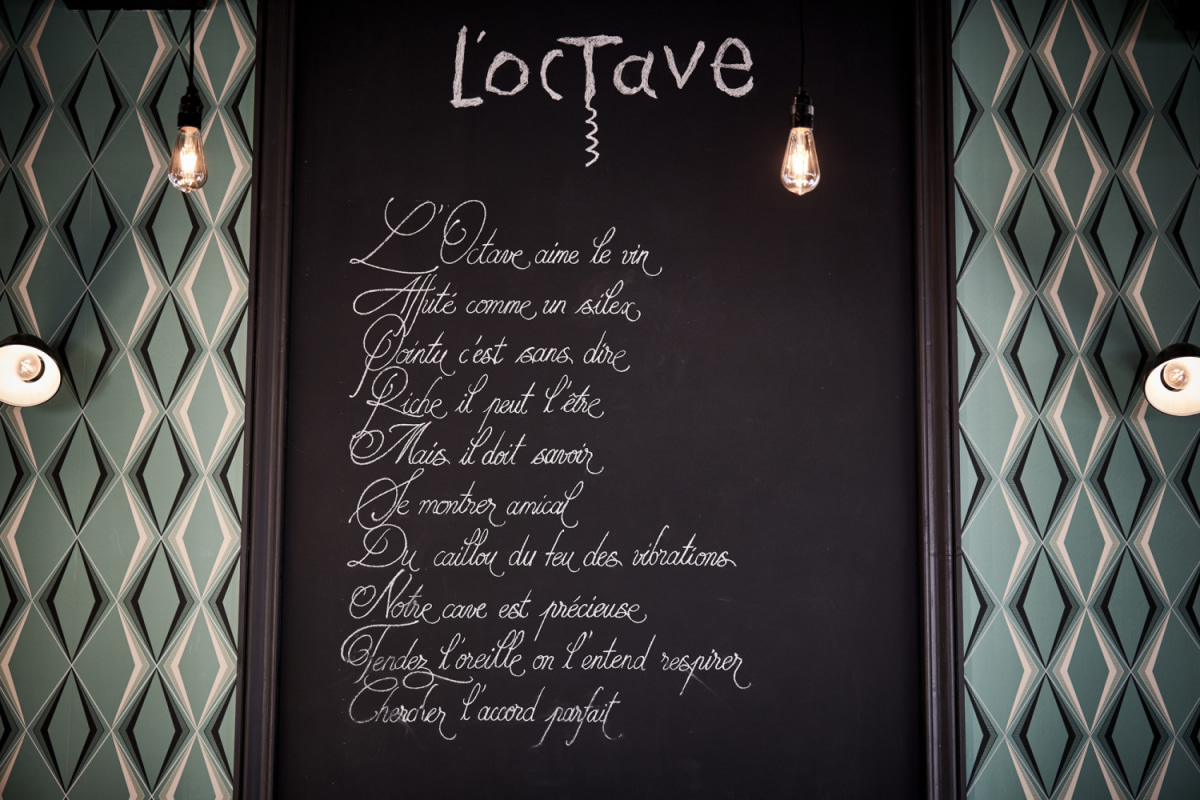 L'ocTave
L'Octave aime le vin
Affuté comme un silex
Pointu c'est sans dire
Riche il peut l'être
Mais il doit savoir
Se montrer amical
Du caillou du feu des vibrations
Notre cave est précieuse
Tendez l'oreille on l'entend respirer
Chercher l'accord parfait